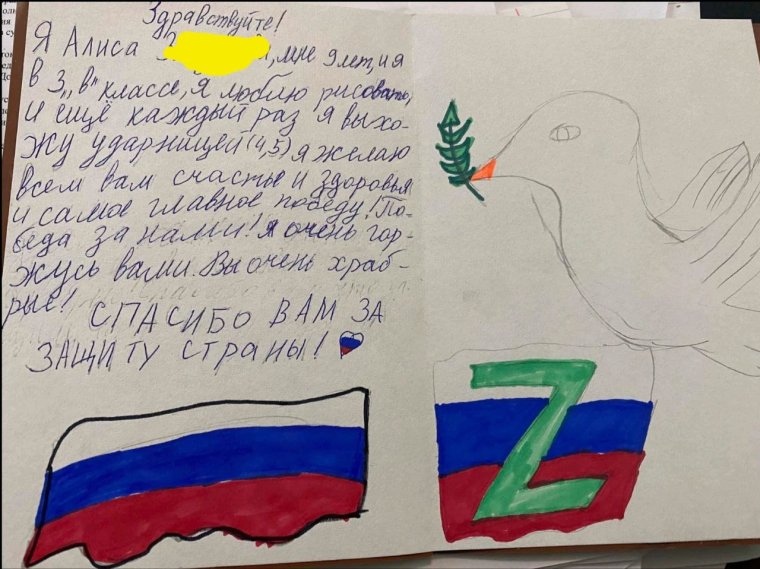 Здравствуйте!
Я Алиса, мне 9 лет, и я
в 3 „в" классе, я люблю рисовать,
и ещё каждый раз я выхо-
жу ударницей (4,5), я желаю
всем вам счастье и здоровья
и самое главное победу! По-
беда за нами! Я очень гор-
жусь вами. Вы очень храб-
рые!
СПАСИБО ВАМ ЗА
ЗАЩИТУ СТРАНЫ!
Z